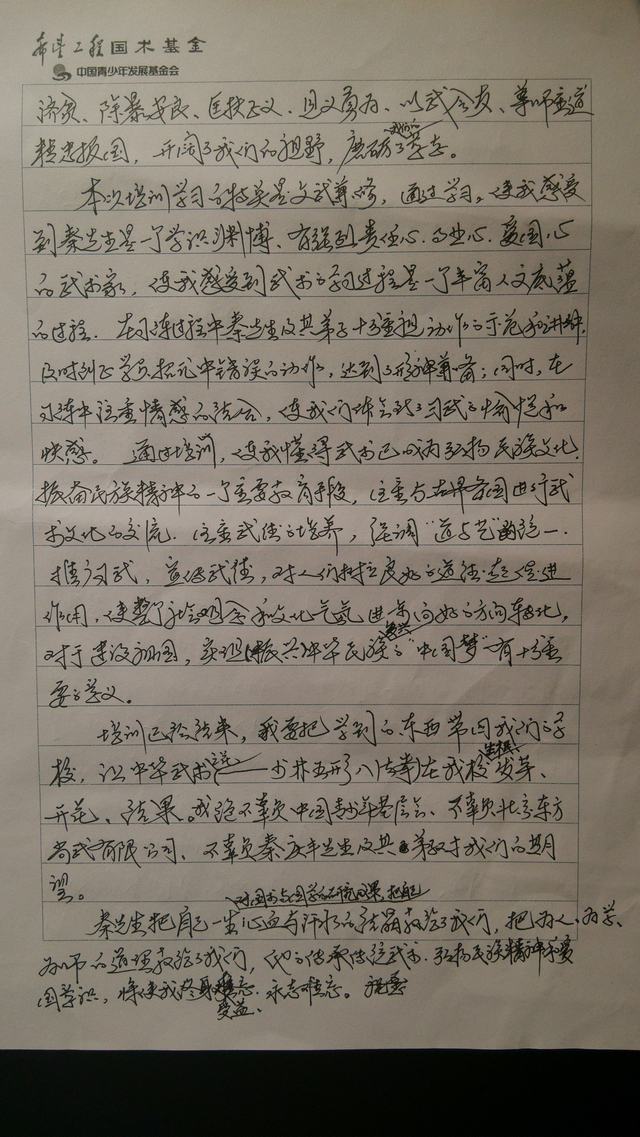 希望工程国术基金
中国青少年发展基金会
济贫、除暴安良、匡扶正义、见义勇为、以武会友、尊师重道
精忠报国,开阔了我们的视野,磨砺了我们的意志。
本次培训学习的特点是文武兼修,通过学习,使我感受
到秦先生是一个学识渊博、有强烈责任心、事业心、爱国心
的武术家,使我感受到武术的学习过程是一个丰富人文底蕴
的过程.在习练过程中秦先生及其弟子十分重视动作的示范和讲解,
及时纠正学员招式中错误的动作,达到了形神兼备;同时,在
习练中注重情感的结合,使我们体会到了习武的愉悦和
快感。通过培训,使我懂得武术已成为弘扬民族文化.
振奋民族精神的一个重要教育手段,注重与世界各国进行武
术文化的交流.注重武德的培养,强调“道与艺”的统一.
推广习武,宣传武德,对人们树立良好的道德起促进
作用,使整个社会观念和文化气氛进一步向好的方向转化,
对于建设祖国,实现振兴中华民族复兴的“中国梦”有十分重
要的意义。
培训已经结束,我要把学到的东西带回我们的学
校,让中华武术之花——少林五形八法拳在我校生根、发芽、
开花、结果。我绝不辜负中国青少年基金会、不辜负北京东方
尚武有限公司、不辜负秦庆丰先生及其弟子对我们的期
望。
秦先生把自己一生心血与汗水的结晶教给了我们,对国术与国学的研究成果,把自己把为人、为学、
为师的道理教给了我们,他的传承传统武术.弘扬民族精神和爱
国学识,将使我终身受益、永志难忘。